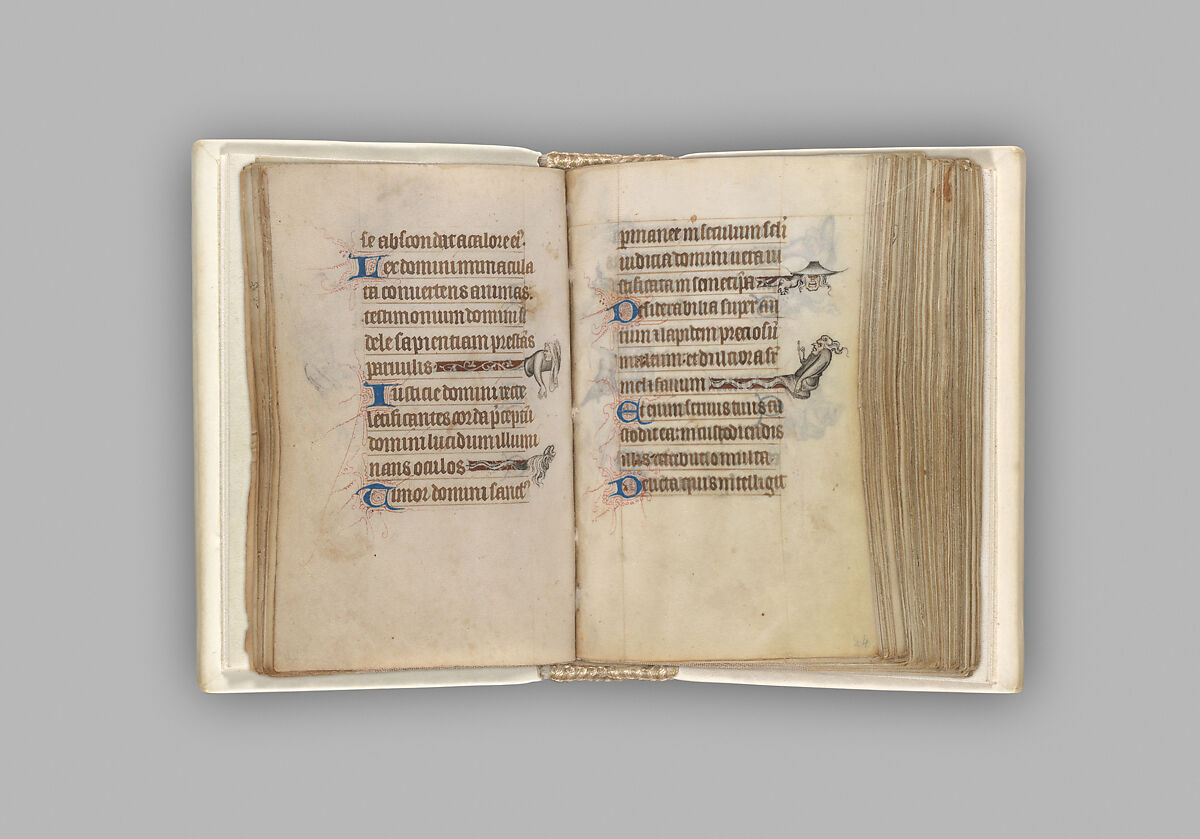 se abscondat a calore eꝰ.
Lex domini inmacula
ta conuertens animas.
testimonium domini fi
dele sapientiam prestās
paruulis
Iusticie domini recte
letificantes corda p̄ceptū
domini lucidum illumi
nans oculos
Timor domini sanctꝰ
p̄manet in seculum scl̄i
iudicia domini uera iu
stificata in semetip̄a
Desiderabilia super au
rum ⁊ lapidem preciosū
multum: et dulciora sr̄
mel ⁊ fauum
Et enim seruus tuus cu
stodit ea: in custodiendis
illis retributio multa.
Delicta quis intelligit
24